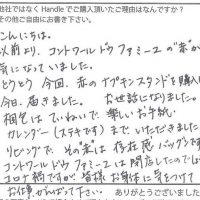 他社ではなく Handle でご購入頂いたご理由はなんですか？
その他ご自由にお書き下さい。
こんにちは。
以前より、コントワール ドゥ ファミーユの"赤"が
気になっていました。
とうとう 今回、赤の ナプキンスタンドを購入
今日、届きました。お世話になりました。
梱包は ていねいで、楽しいお手紙、
カレンダー(ステキです)までいただきました
リビングで、その"赤"は 存在感 バツグンです
コントワール ドゥ ファミーユは閉店したのでしょ
コロナ禍ですが、皆様 お身体に気をつけて
お仕事がんばって下さい。
ありがとうございました